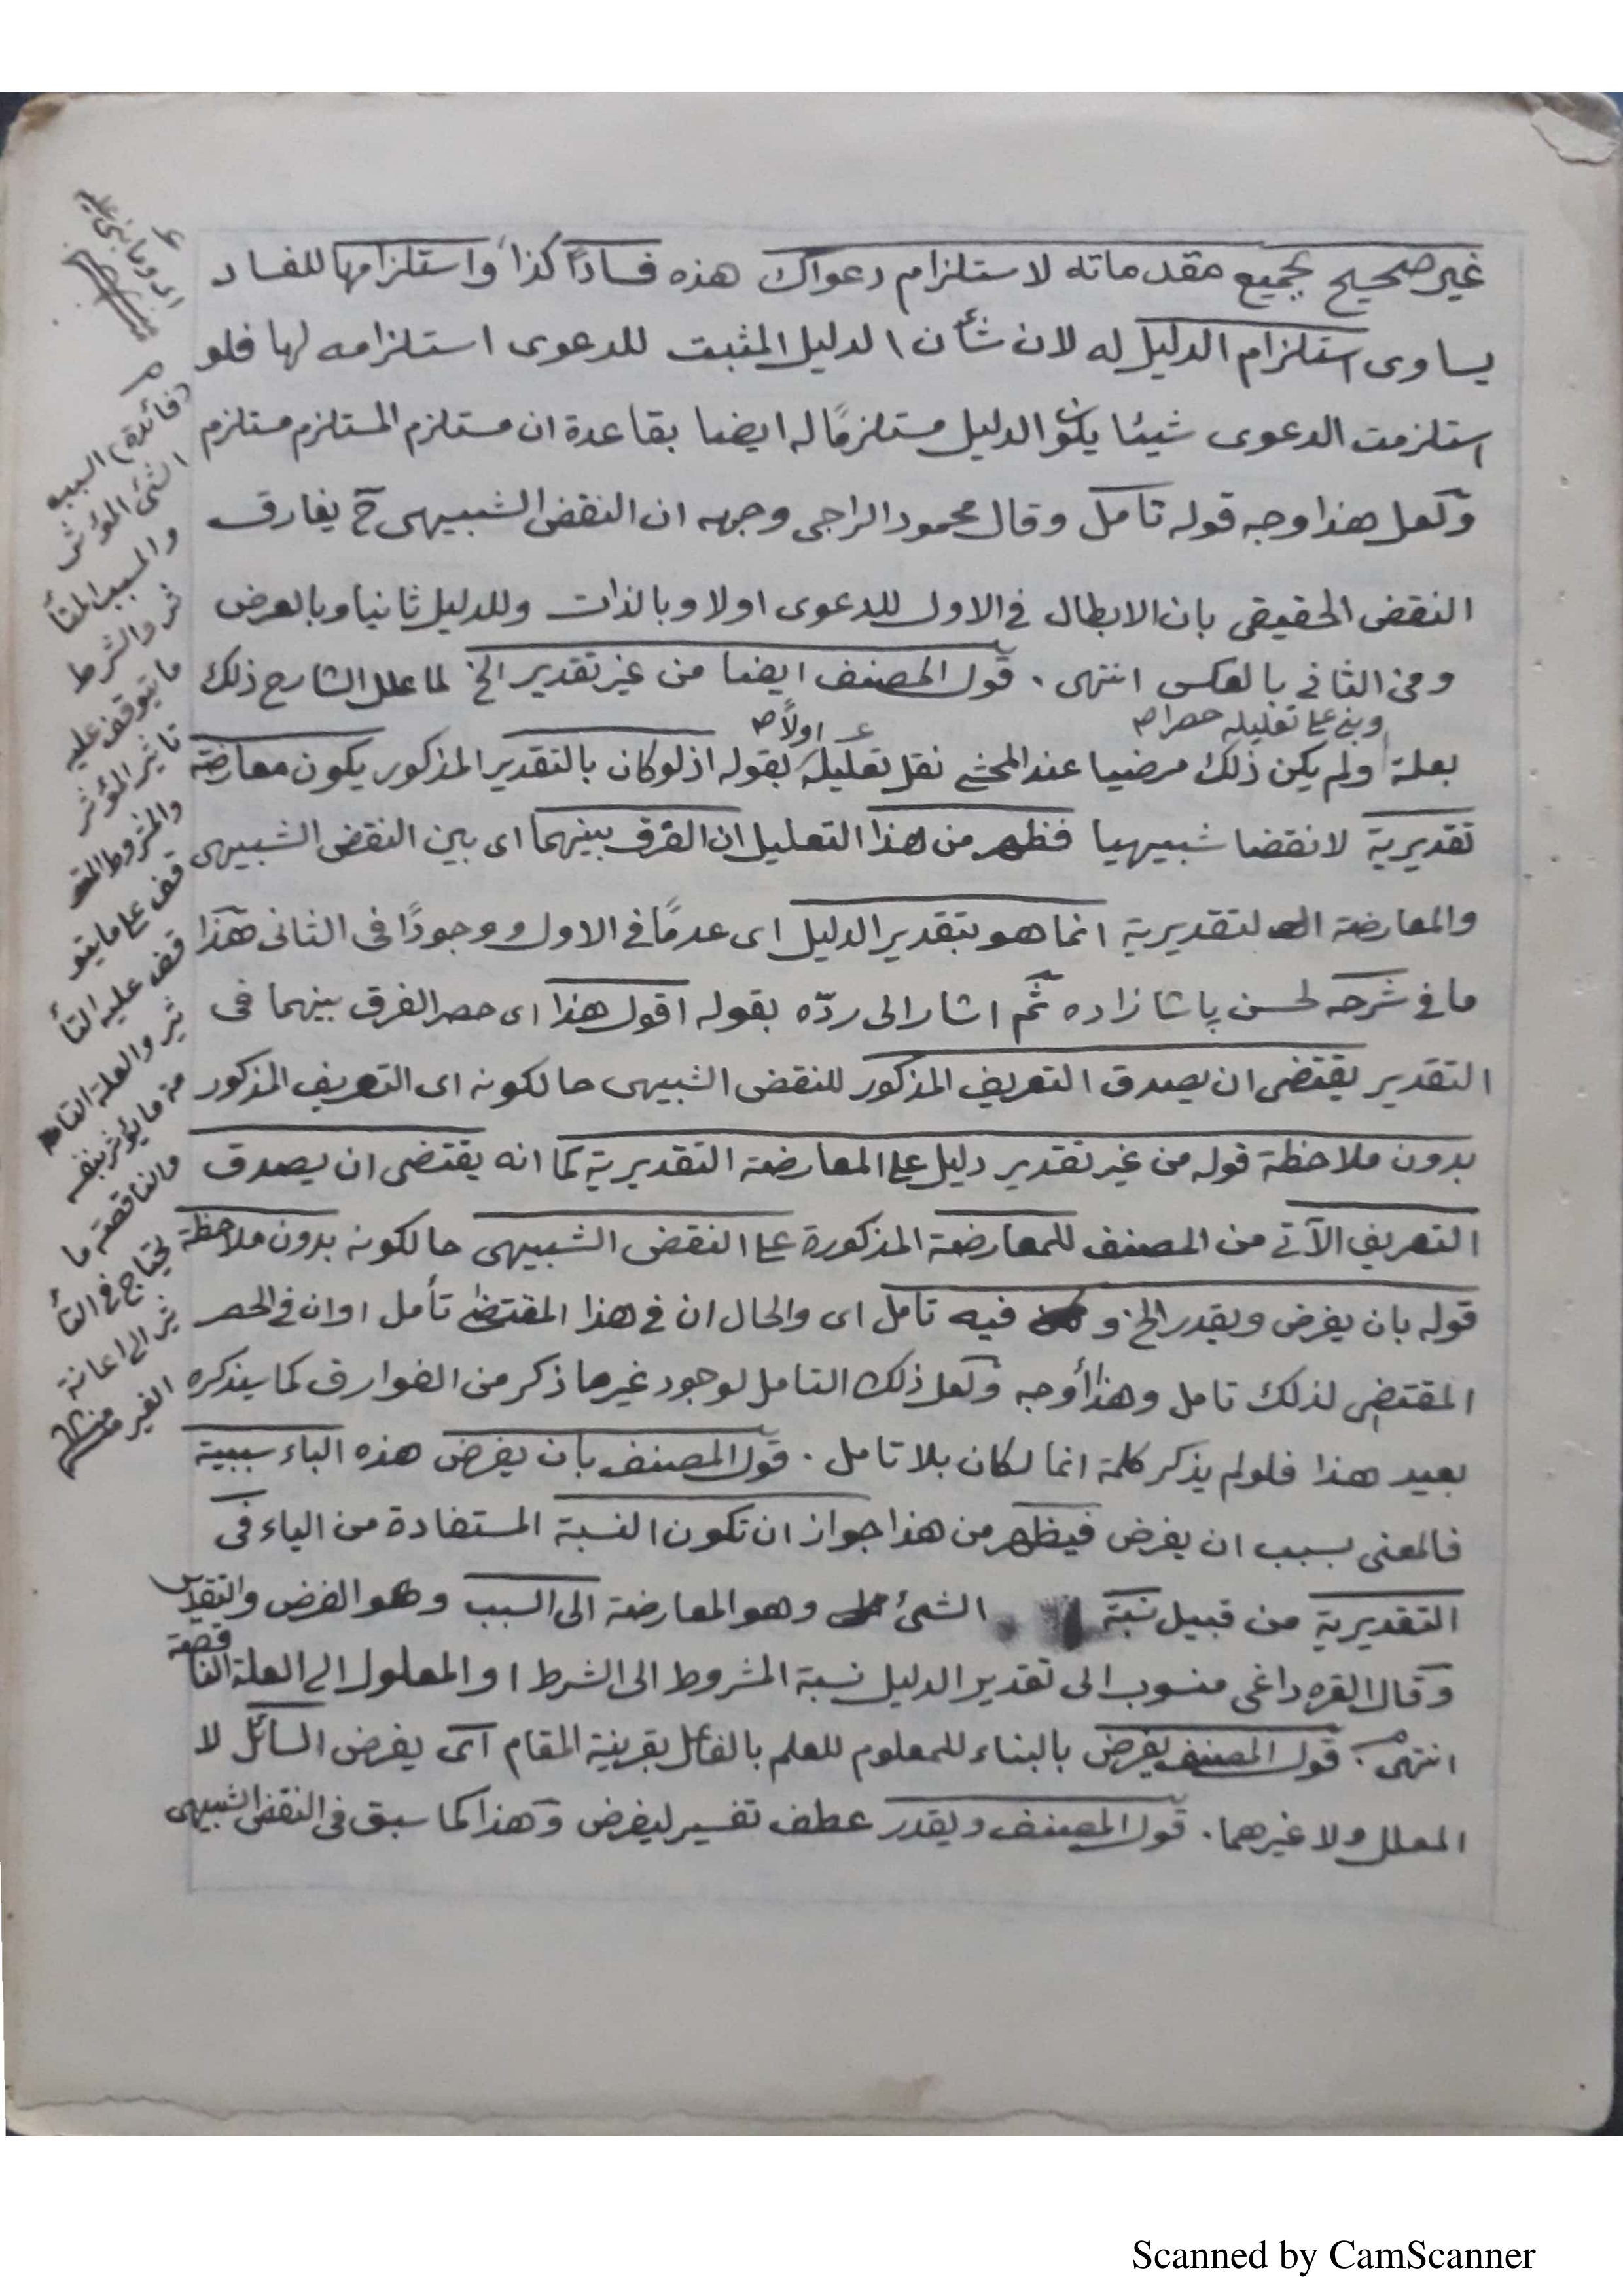 غير صحيح بجميع مقدماته لاستلزام دعواك هذه فسادًا كذا واستلزامها للفساد
يساوى استلزام الدليل له لان شأن الدليل المثبت للدعوى استلزامه لها فلو
استلزمت الدعوى شيئا يكون الدليل مستلزمًا له ايضا بقاعدة ان مستلزم المستلزم مستلزم
ولعل هذا وجه قوله تامل وقال محمود الراجى وجهه ان النقض الشبيهى ح يفارق
النقض الحقيقى بان الابطال فى الاول للدعوى اولا وبالذات وللدليل ثانيا وبالعرض
ومن الثانى بالعكس انتهى . قول المصنف ايضا من غير تقدير الخ لما علل الشارح ذلك
وبنى على تعليله حصرا صح
اولاً صح
بعلة ولم يكن ذلك مرضيا عند المحشى نقل تعليله بقوله اذ لو كان بالتقدير المذكور يكون معارضة
تقديرية لا نقضا شبيهيا فظهر من هذا التعليل ان الفرق بينهما اى بين النقض الشبيهى
والمعارضة التقديرية انما هو بتقدير الدليل اى عدمًا فى الاول ووجودًا فى الثانى هذا
ما فى شرحه لحسن پاشا زاده ثم اشار الى ردّه بقوله اقول هذا اى حصر الفرق بينهما فى
التقدير يقتضى ان يصدق التعريف المذكور للنقض الشبيهى حالكونه اى التعريف المذكور
بدون ملاحظة قوله من غير تقدير دليل على المعارضة التقديرية كما انه يقتضى ان يصدق
التعريف الآتى من المصنف للمعارضة المذكورة على النقض الشبيهى حالكونه بدون ملاحظة
قوله بان يفرض ويقدر الخ و فيه تامل اى والحال ان فى هذا المقتضى تأمل او ان فى الحصر
المقتضى لذلك تامل وهذا أوجه ولعل ذلك التامل لوجود غير ما ذكر من الفوارق كما يذكره
بعيد هذا فلو لم يذكر كلمة انما لكان بلا تامل . قول المصنف بان يفرض هذه الباء سببية
فالمعنى بسبب ان يفرض فيظهر من هذا جواز ان تكون النسبة المستفادة من الياء فى
التقديرية من قبيل نسبة الشئ وهو المعارضة الى السبب وهو الفرض والتقدير
وقال القره داغى منسوب الى تقدير الدليل نسبة المشروط الى الشرط او المعلول الى العلة الناقصة
انتهى . قول المصنف يفرض بالبناء للمعلوم للعلم بالفاعل بقرينة المقام اى يفرض السائل لا
المعلل ولا غيرهما . قول المصنف ويقدر عطف تفسير ليفرض وهذا كما سبق فى النقض الشبيهى
اى وما بنى عليه
(فائدة) السبب
الشئ المؤثر
والمسبب المتأ
ثر والشرط
ما يتوقف عليه
تاثير المؤثر
والمشروط المتو
قف على ما يتو
قف عليه التأ
ثير والعلة التا
مة ما يؤثر بنفسه
والناقصة ما
يحتاج فى التأ
ثير الى اعانة
الغير منه
Scanned by CamScanner